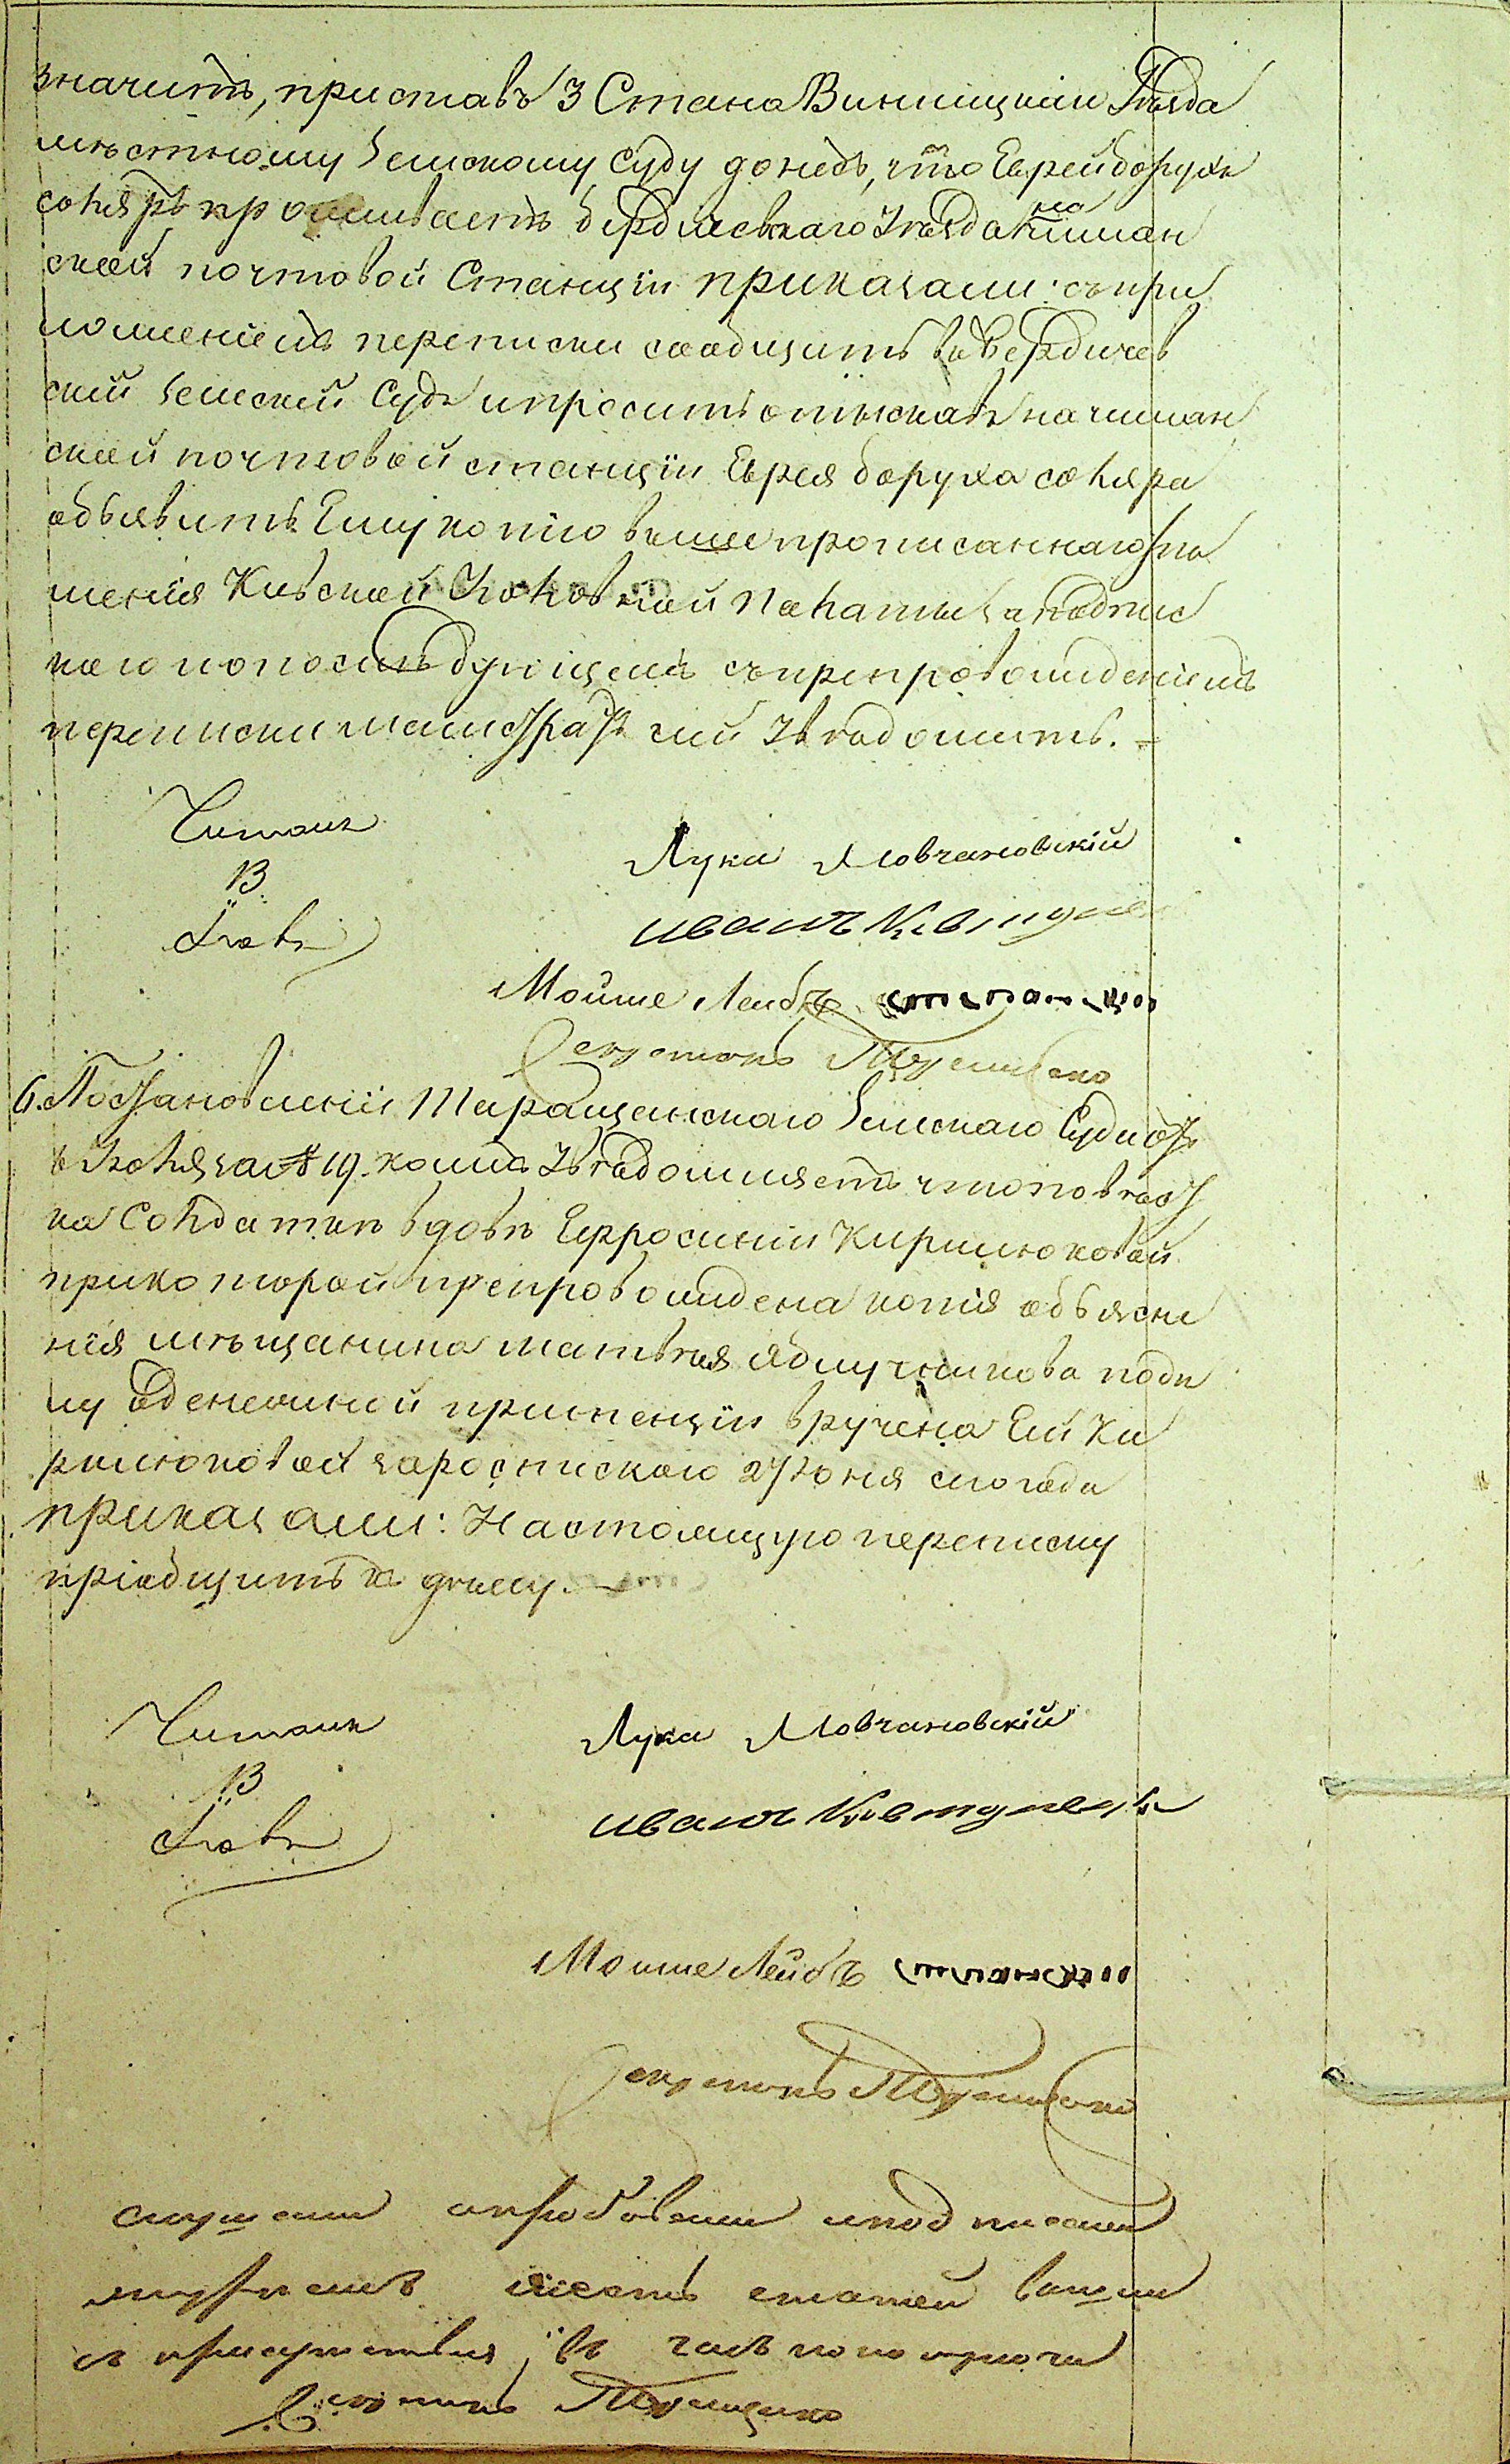 значитъ, приставъ 3 Стана Винницкаго Уѣзда
мѣстному Земскому Суду донесъ, что Еврей борухъ
соляръ проживаетъ бердичевскаго Уѣзда на
ской почтовой Станціи приказали: съ при
ложеніемъ переписки сообщить въ бердичев
скій Земскій Судъ и просить отыскавъ на
ской почтовой станціи Еврея боруха соляра
объявить Ему копію вышепрописаннаго рѣ
шенія Кіевской Уголовной Палаты за подпис
кою и о послѣдующемъ съ препровожденіемъ
переписки магистратъ сей Увѣдомить.
Читалъ
Лука Мовчановскій
В.
иванъ
Мойше Лейбъ
Секретарь
6. Постановленіи Таращанскаго Земскаго Суда отъ
Іюля за № 19. коимъ Увѣдомляетъ что повѣст
ка Солдаткѣ вдовѣ Ефросиніи Кирилюковой
при которой препровождена копія объясне
нія мѣщанина Матвѣя Яблучникова по дѣ
лу о денежной претенціи вручена Ей Ки
рилюковой за роспискою 27 Іюня сего года
приказали: Настоящую переписку
пріобщить къ дѣлу.
Читалъ
Лука Мовчановскій
В
иванъ
Мойше Лейбъ
Секретарь
слушали апробовали и подписали
шесть статей вышли
изъ присутствія въ часъ по полуночи
Секретарь